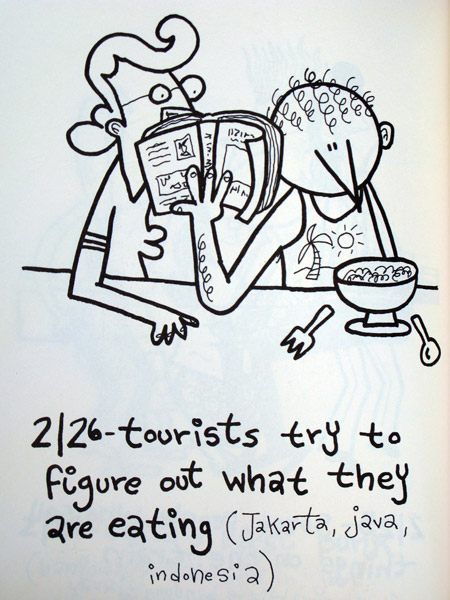 2/26-tourists try to
figure out what they
are eating (Jakarta, java,
indonesia)